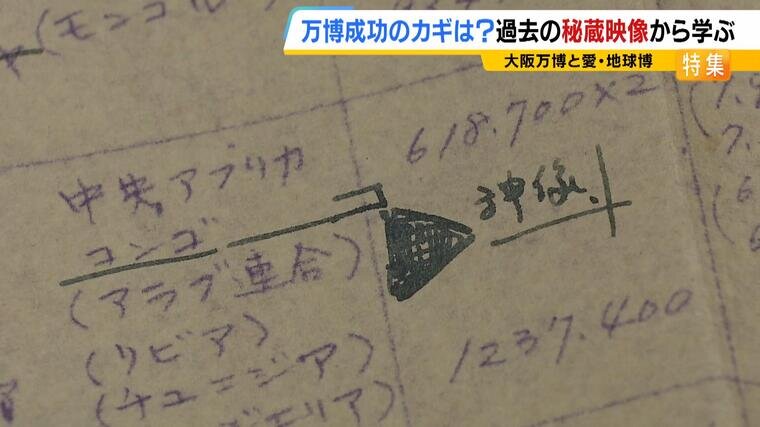 万博成功のカギは?過去の秘蔵映像から学ぶ
大阪万博と愛・地球博
特集
618.700×2
中央アフリカ
コンゴ
(アラブ連合)
(リビア)
1237.400
(チュニジア)